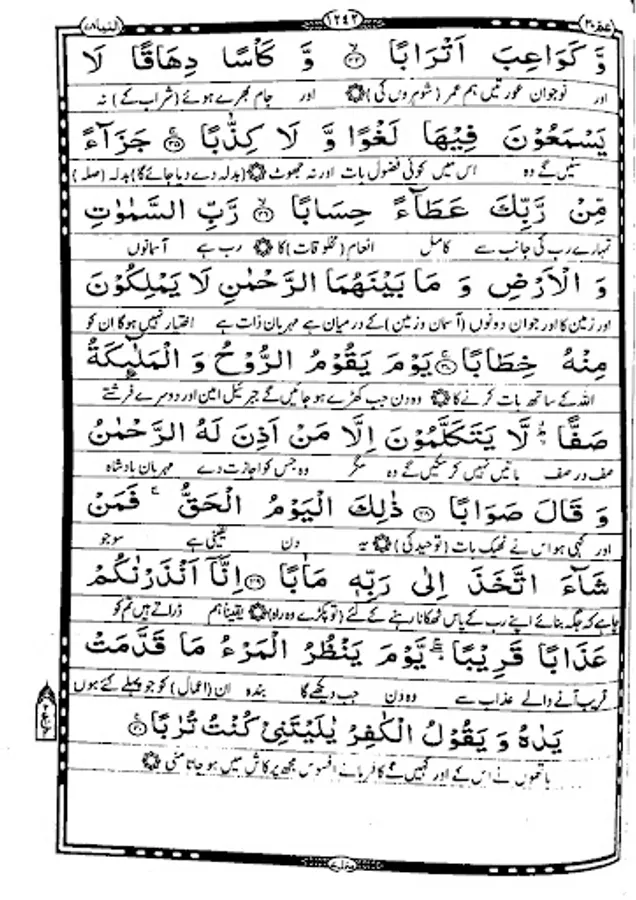 عم ٣٠ ١٢٤٢ النبا ٧٨
وَّ كَوَاعِبَ اَتْرَابًا ۙ﴿٣٣﴾ وَّ كَاْسًا دِهَاقًا لَا
اور نوجوان عورتیں ہم عمر (شوہروں کی) اور جام بھرے ہوئے (شراب کے) نہ
يَسْمَعُوْنَ فِيْهَا لَغْوًا وَّ لَا كِذّٰبًا ۚ﴿٣٥﴾ جَزَآءً
سنیں گے وہ اس میں کوئی فضول بات اور نہ جھوٹ (بدلہ دے دیا جائے گا) بدلہ (صلہ)
مِّنْ رَّبِّكَ عَطَآءً حِسَابًا ۙ﴿٣٦﴾ رَّبِّ السَّمٰوٰتِ
تمہارے رب کی جانب سے کامل انعام (مخلوقات) کا رب ہے آسمانوں
وَ الْاَرْضِ وَ مَا بَيْنَهُمَا الرَّحْمٰنِ لَا يَمْلِكُوْنَ
اور زمین کا اور جو ان دونوں (آسمان و زمین) کے درمیان ہے مہربان ذات ہے اختیار نہیں ہوگا ان کو
مِنْهُ خِطَابًا ۚ﴿٣٧﴾ يَوْمَ يَقُوْمُ الرُّوْحُ وَ الْمَلٰٓئِكَةُ
اللہ کے ساتھ بات کرنے کا وہ دن جب کھڑے ہو جائیں گے جبرئیل امین اور دوسرے فرشتے
صَفًّا ۙۗ لَّا يَتَكَلَّمُوْنَ اِلَّا مَنْ اَذِنَ لَهُ الرَّحْمٰنُ
صف در صف باتیں نہیں کر سکیں گے وہ مگر وہ جس کو اجازت دے مہربان بادشاہ
وَ قَالَ صَوَابًا ﴿٣٨﴾ ذٰلِكَ الْيَوْمُ الْحَقُّ ۚ فَمَنْ
اور کہی ہو اس نے ٹھیک بات (توحید کی) یہ دن یقینی ہے سو جو
شَآءَ اتَّخَذَ اِلٰى رَبِّهٖ مَاٰبًا ﴿٣٩﴾ اِنَّاۤ اَنْذَرْنٰكُمْ
چاہے کہ جگہ بنائے اپنے رب کے پاس ٹھکانا رہنے کے لئے (تو پکڑے وہ راہ) یقیناً ہم ڈراتے ہیں تم کو
عَذَابًا قَرِيْبًا ۖۚ يَّوْمَ يَنْظُرُ الْمَرْءُ مَا قَدَّمَتْ
قریب آنے والے عذاب سے وہ دن جب دیکھے گا بندہ ان (اعمال) کو جو پہلے کئے ہوں
يَدٰهُ وَ يَقُوْلُ الْكٰفِرُ يٰلَيْتَنِيْ كُنْتُ تُرٰبًا ﴿٤٠﴾
ہاتھوں نے اس کے اور کہیں گے کافر ہائے افسوس مجھ پر کاش میں ہو جاتا مٹی